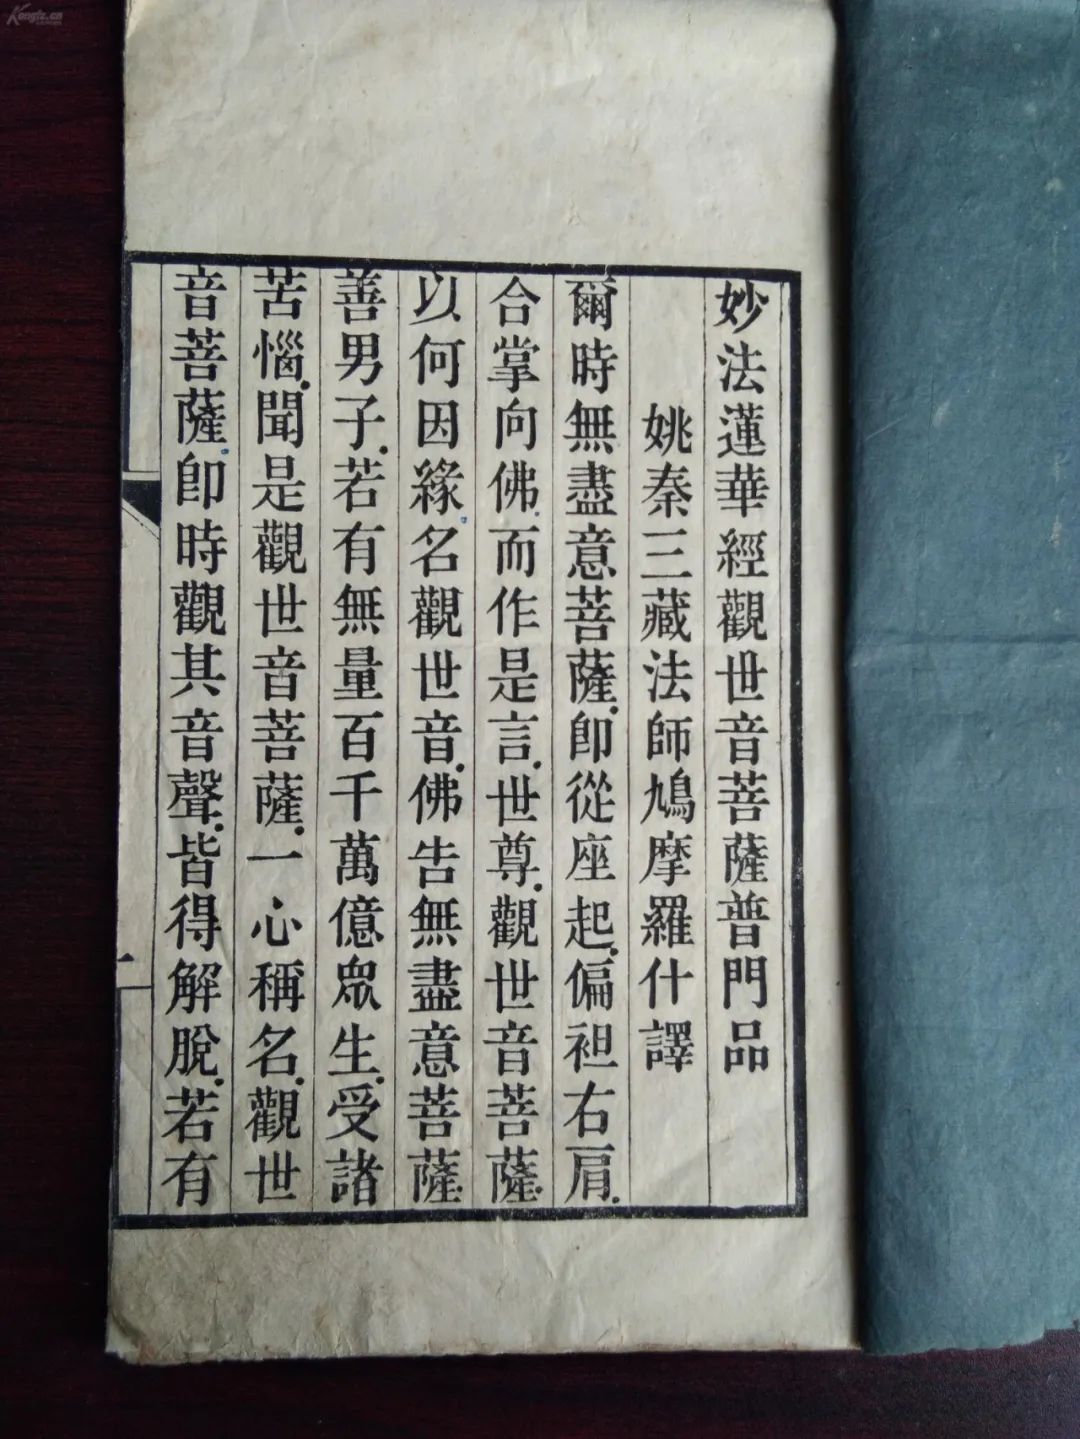 妙法蓮華經觀世音菩薩普門品
姚秦三藏法師鳩摩羅什譯
爾時無盡意菩薩.卽從座起.偏袒右肩.
合掌向佛.而作是言.世尊.觀世音菩薩.
以何因緣.名觀世音.佛告無盡意菩薩.
善男子.若有無量百千萬億眾生.受諸
苦惱.聞是觀世音菩薩.一心稱名.觀世
音菩薩.卽時觀其音聲.皆得解脫.若有
一
Kongfz.cn